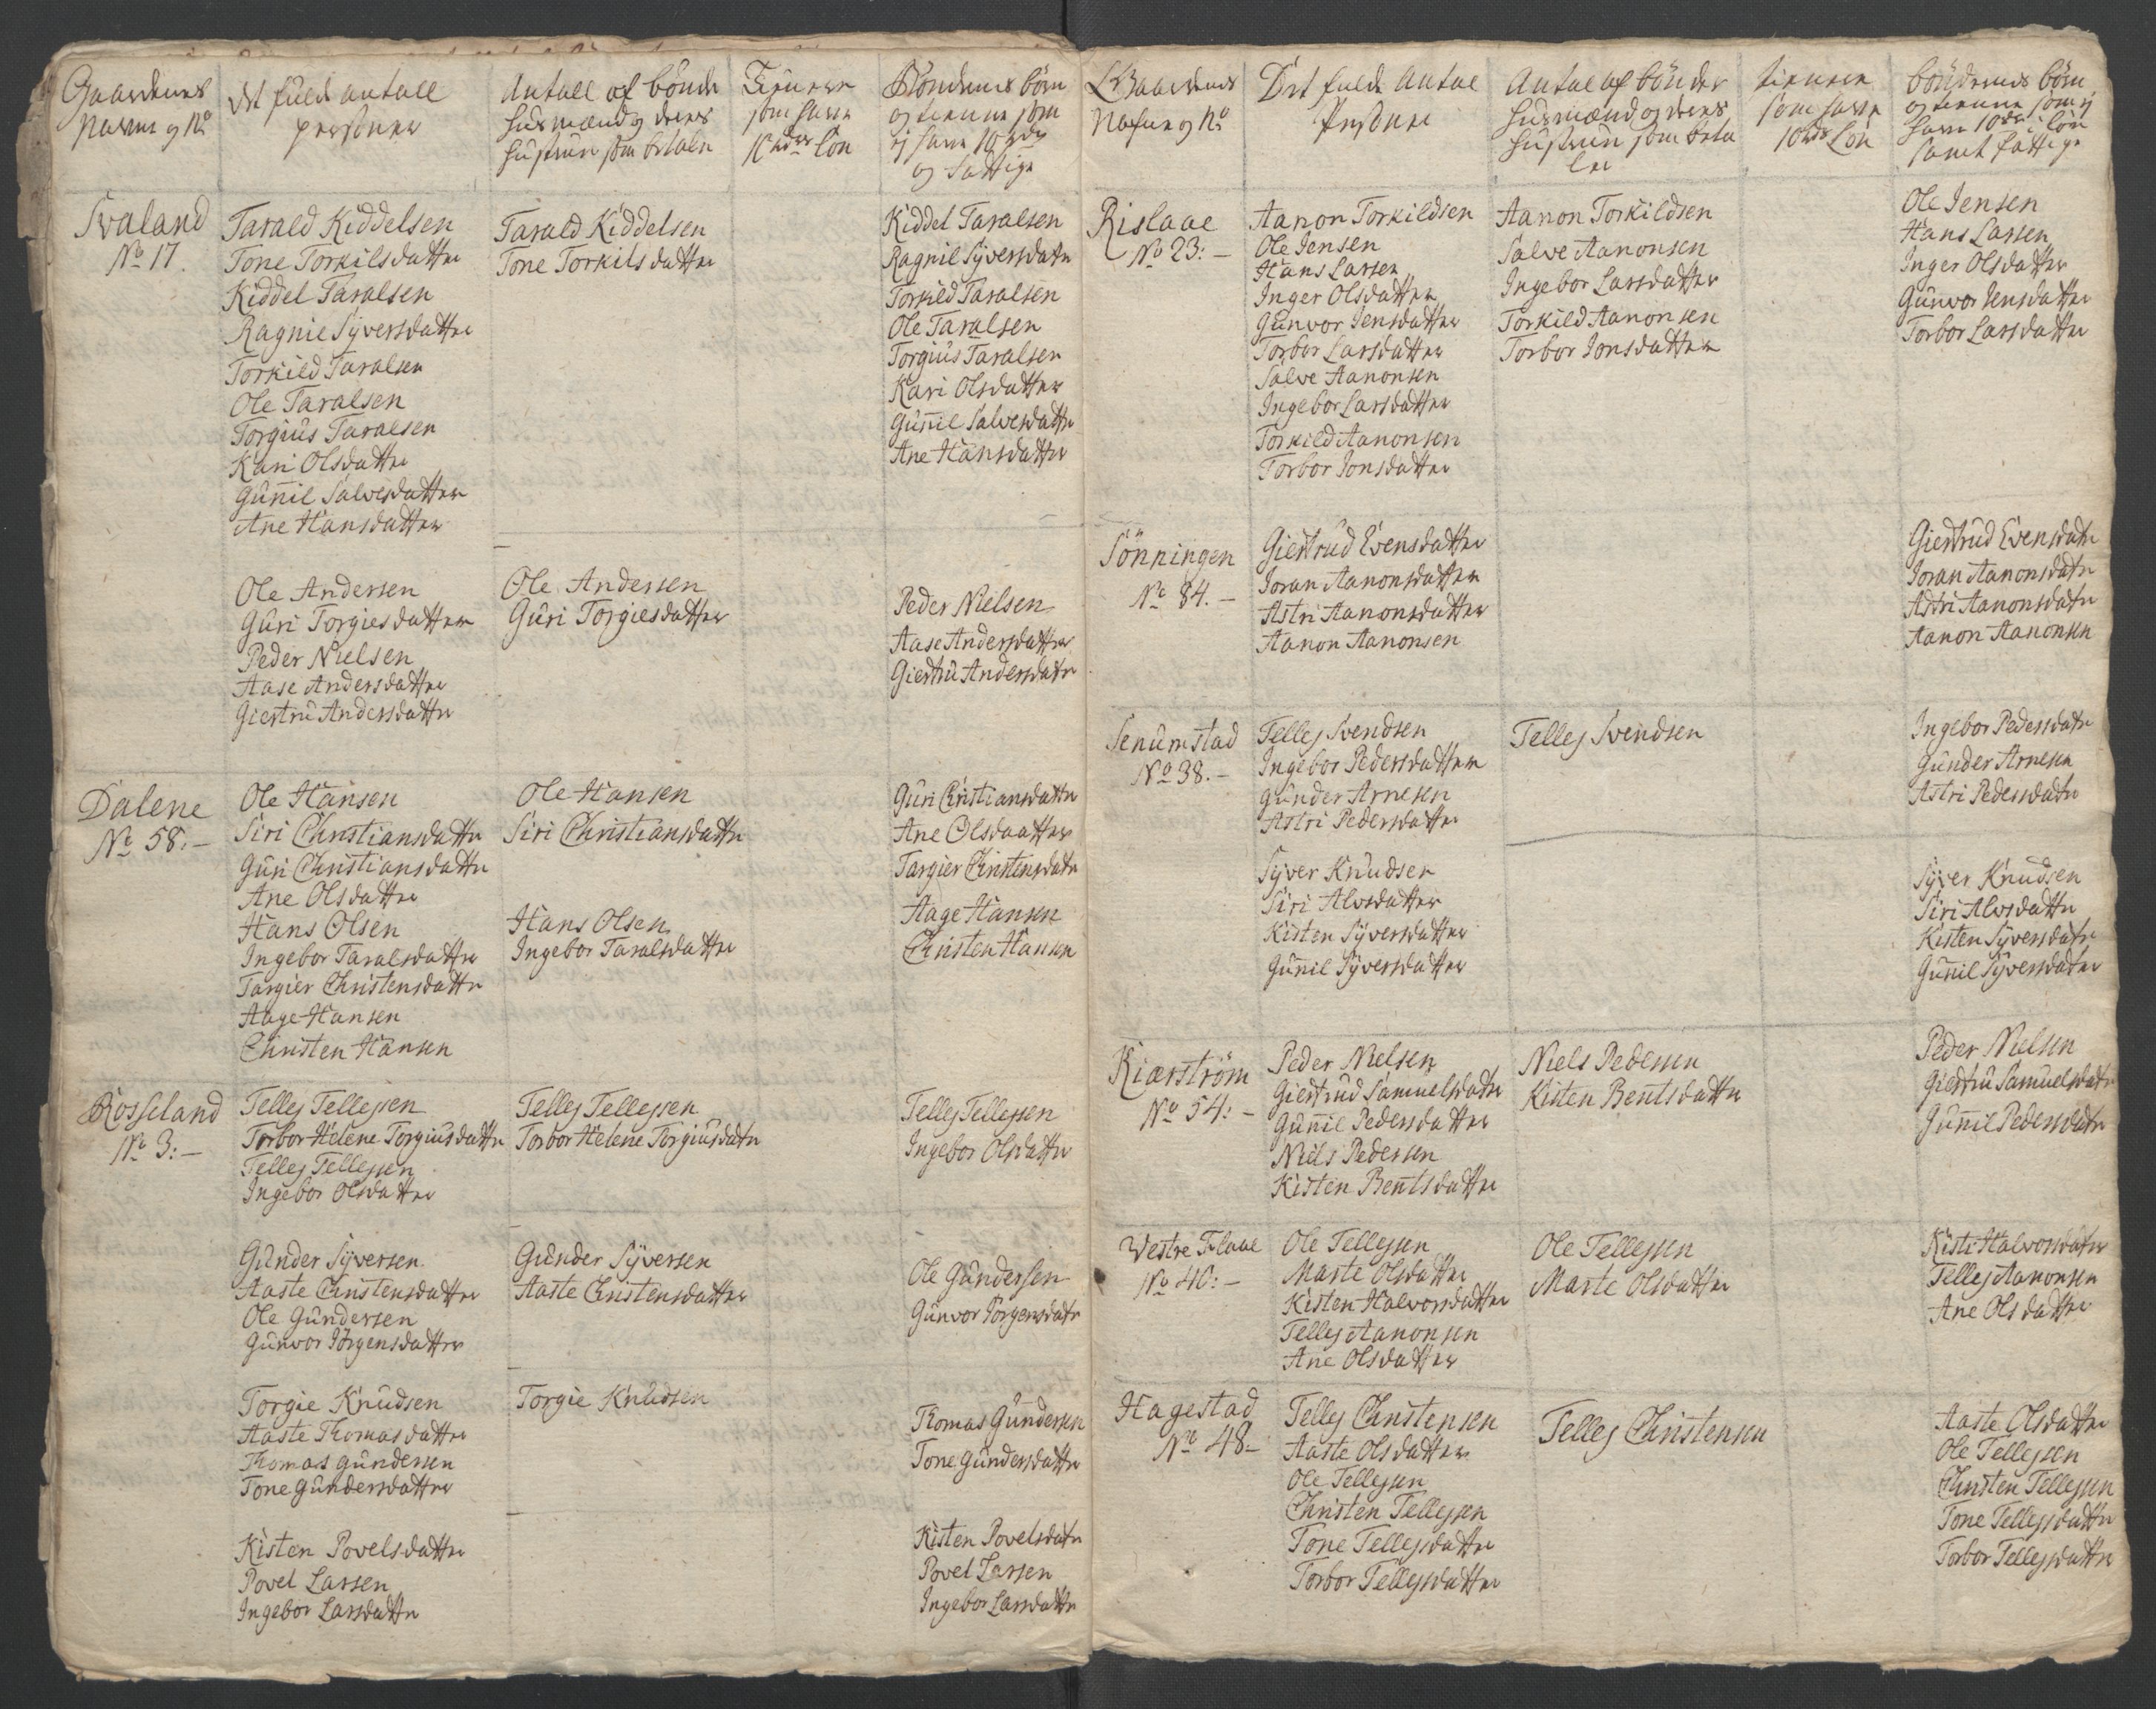 Gaardenes
Navne og No
det fulde antall
personer
Antall af bönder
huusmænd og deres
hustruer som betaler
Tienere
som have
10 rdr Lön
Böndernes börn
og tienere som
ej have 10 rdr
og fattige
Svaland
No 17.
Tarald Kiddelsen
Tone Torkilsdatter
Kiddel Taralsen
Ragnie Syversdatter
Torkild Taralsen
Ole Taralsen
Torgius Taralsen
Kari Olsdatter
Gunnil Salvesdatter
Ane Hansdatter
Tarald Kiddelsen
Tone Torkilsdatter
Kiddel Taralsen
Ragnil Syversdatr
Torkild Taralsen
Ole Taralsen
Torgius Taralsen
Kari Olsdatter
Gunnil Salvesdattr
Ane Hansdatter
Ole Andersen
Guri Torgiesdatter
Peder Nielsen
Aase Andersdatter
Giertru Andersdattr
Ole Andersen
Guri Torgiesdatter
Peder Nielsen
Aase Andersdatter
Giertru Andersdatr
Dalene
No 58. -
Ole Hansen
Siri Christiansdattr
Guri Christiansdattr
Ane Olsdatter
Hans Olsen
Ingebor Taralsdatter
Targier Christensdattr
Aage Hansen
Christen Hansen
Ole Hansen
Siri Christiansdattr
Hans Olsen
Ingebor Taralsdatter
Guri Christiansdattr
Ane Olsdaatter
Targier Christensdatr
Aage Hansen
Christen Hansen
Rosseland
No 3: -
Tellej Tellejsen
Torbor Helene Torgiusdattr
Tellej Tellejsen
Ingebor Olsdatter
Tellej Tellejsen
Torbor Helene Torgiusdatr
Tellej Tellejsen
Ingebor Olsdattr
Gunder Syversen
Aaste Christensdatter
Ole Gundersen
Gunvor Jörgensdatter
Gunder Syversen
Aaste Christensdatter
Ole Gundersen
Gunvor Jörgensdatr
Torgie Knudsen
Aaste Thomasdatter
Thomas Gundersen
Tone Gundersdatter
Torgie Knudsen
Thomas Gundersen
Tone Gundersdatter
Kisten Povelsdatter
Povel Larsen
Ingebor Larsdattr
Kisten Povelsdatr
Povel Larsen
Ingebor Larsdattr
Gaardenes
Nafne og No
Det fulde Antal
Personer
Antal af bönder
huusmænd og deres
hustruer som beta
ler
tienere
som have
10 rdr Lön
böndernes börn
og tienere som ej
have 10 rdr lön
samt fattige
Rislaae
No 23: -
Aanon Torkildsen
Ole Jensen
Hans Larsen
Inger Olsdatter
Gunvor Jensdatter
Torbor Larsdatter
Salve Aanonsen
Ingebor Larsdatter
Torkild Aanonsen
Torbor Jonsdatter
Aanon Torkildsen
Salve Aanonsen
Ingebor Larsdatter
Torkild Aanonsen
Torbor Jonsdatter
Ole Jensen
Hans Larsen
Inger Olsdatter
Gunvor Jensdatter
Torbor Larsdattr
Sönningen
No 84. -
Giertrud Evensdatter
Joran Aanonsdatter
Astri Aanonsdatter
Aanon Aanonsen
Giertrud Evensdatr
Joran Aanonsdatr
Astri Aanonsdatr
Aanon Aanonsen
Senumstad
No 38. -
Tellej Svendsen
Ingebor Pedersdatter
Gunder Arnesen
Astri Pedersdatter
Tellej Svendsen
Ingebor Pedersdatr
Gunder Arnesen
Astri Pedersdatr
Syver Knudsen
Siri Alvsdatter
Kisten Syversdatter
Gunnil Syversdatter
Syver Knudsen
Siri Alvsdattr
Kisten Syversdatr
Gunnil Syversdatter
Kiærström
No 54: -
Peder Nielsen
Giertrud Samuelsdatr
Gunnil Pedersdatter
Niels Pedersen
Kisten Bentsdatter
Niels Pedersen
Kisten Bentsdattr
Peder Nielsen
Giertru Samuelsdatr
Gunnil Pedersdatr
Westre Flaae
No 40: -
Ole Tellejsen
Marte Olsdatter
Kisten Halvorsdatter
Tellej Aanonsen
Ane Olsdatter
Ole Tellejsen
Marte Olsdatter
Kisti Halvorsdatr
Tellej Aanonsen
Ane Olsdatter
Hagestad
No 48 -
Tellej Christensen
Aaste Olsdatter
Ole Tellejsen
Christen Tellejsen
Tone Tellejsdatter
Torbor Tellejsdatter
Tellej Christensen
Aaste Olsdatter
Ole Tellejsen
Christen Tellejsen
Tone Tellejsdattr
Torbor Tellejsdattr